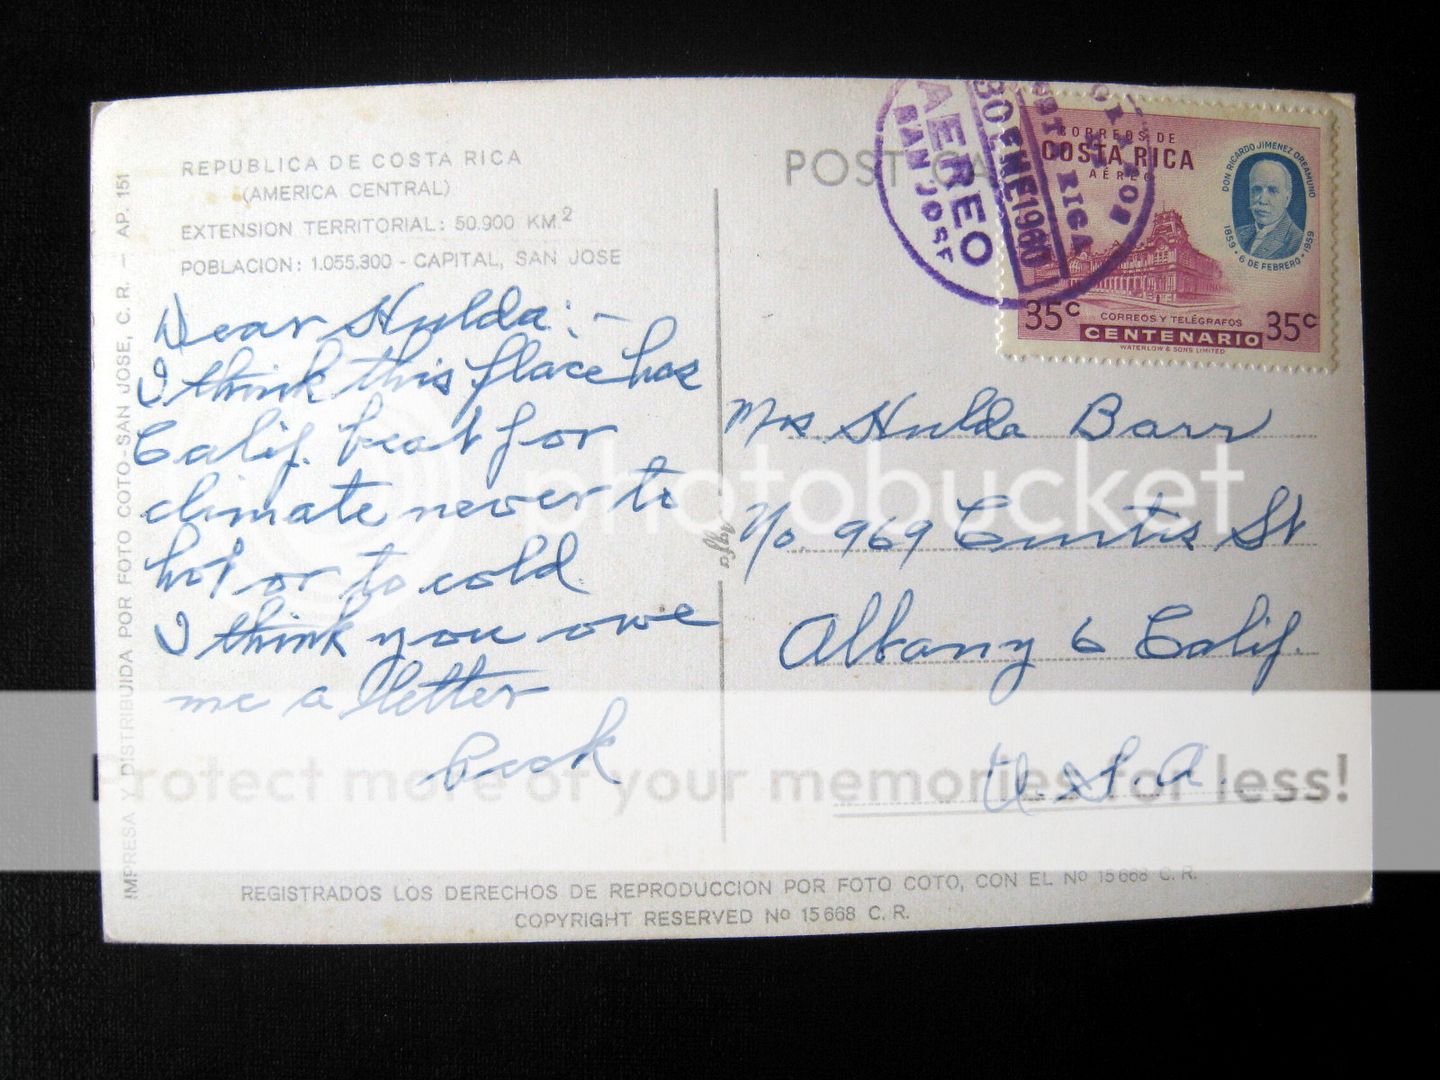 REPUBLICA DE COSTA RICA
(AMERICA CENTRAL)
EXTENSION TERRITORIAL: 50.900 KM2
POBLACION: 1.055.300 - CAPITAL, SAN JOSE
Dear Hulda:-
I think this place has
Calif. beat for
climate never to
hot or to cold.
I think you owe
me a letter
IMPRESA Y DISTRIBUIDA POR FOTO COTO-SAN JOSE, C. R. - AP. 151
POST CA
AEREO
SAN JOSE
30 ENE 1960
COSTA RICA
CORREOS DE
COSTA RICA
AÉREO
DON RICARDO JIMENEZ OREAMUNO
1859 - 6 DE FEBRERO - 1959
35c
CORREOS Y TELÉGRAFOS
35c
CENTENARIO
WATERLOW & SONS LIMITED
Agfa
Mrs Hulda Barr
No. 969 Curtis St
Albany 6 Calif.
U.S.A.
photobucket
Protect more of your memories for less!
REGISTRADOS LOS DERECHOS DE REPRODUCCION POR FOTO COTO, CON EL No 15668 C. R.
COPYRIGHT RESERVED No 15668 C. R.